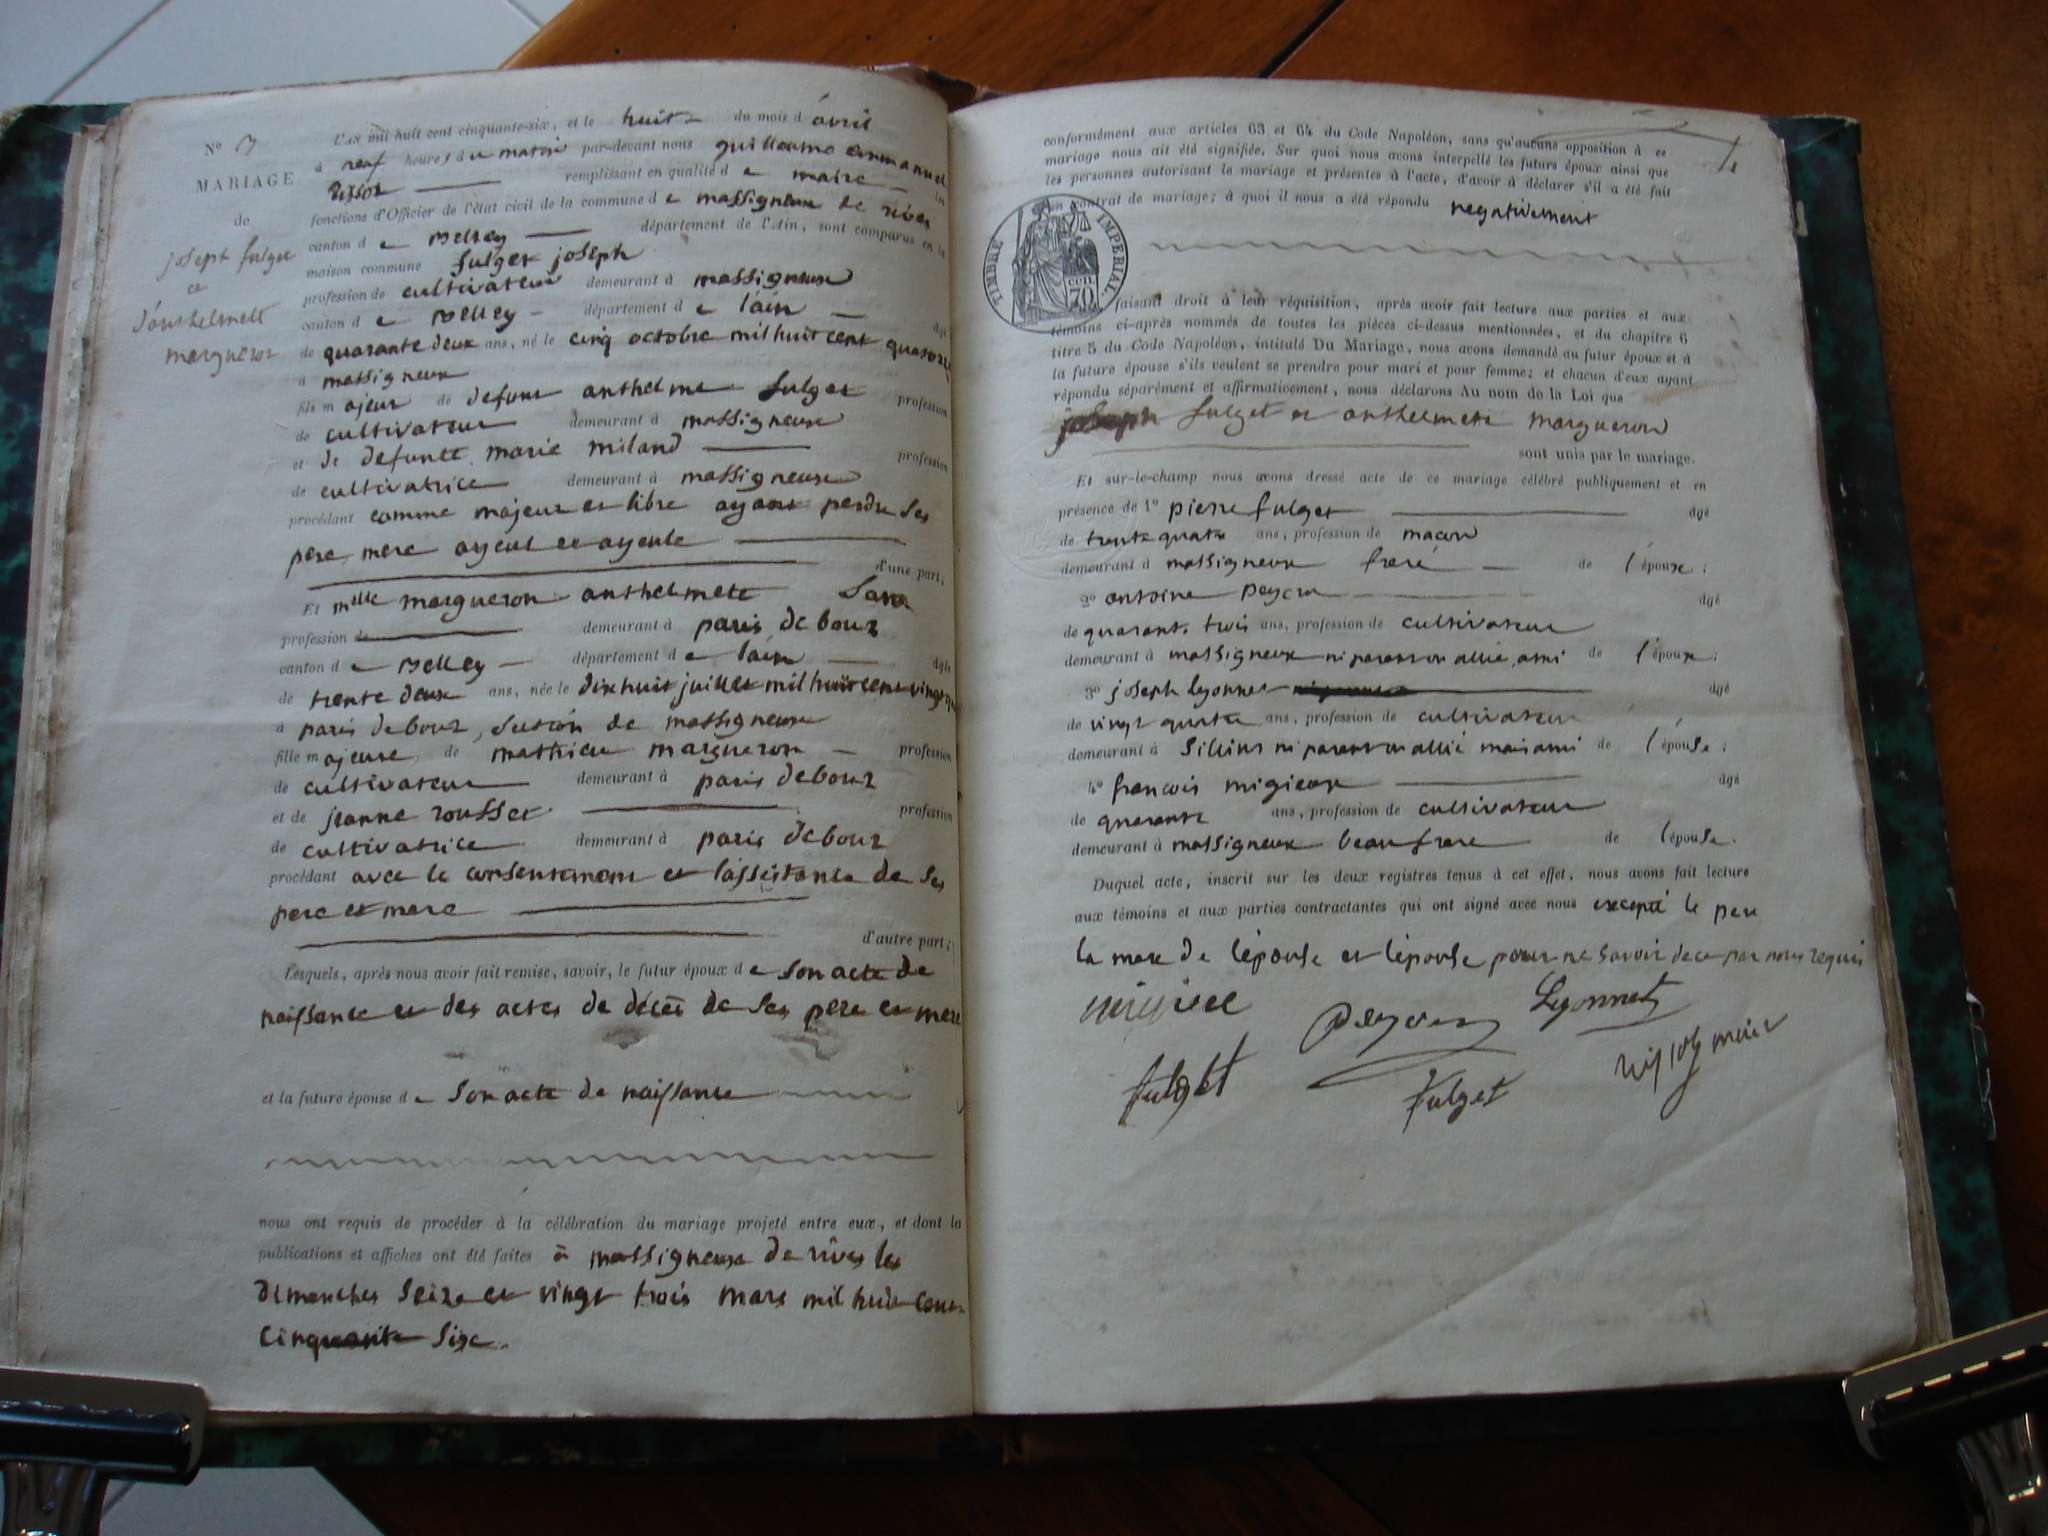 N° 3
MARIAGE
de
joseph fulget
et
d'anthelmette
margueron
L'an mil huit cent cinquante-six, et le huit du mois d'avril
à neuf heures du matin par-devant nous guillaume emmanuel
remplissant en qualité de maire les
fonctions d'Officier de l'état civil de la commune de massigneux de rives
canton de Belley département de l'Ain, sont comparus en la
maison commune fulget joseph
profession de cultivateur demeurant à massigneux
canton de Belley département de l'ain âgé
de quarante deux ans, né le cinq octobre mil huit cent quatorze
à massigneux
fils majeur de defunt anthelme fulget profession
de cultivateur demeurant à massigneux
et de defunte marie miland profession
de cultivatrice demeurant à massigneux
procédant comme majeur et libre ayant perdu ses
pere, mere ayeul et ayeule
d'une part;
Et melle margueron anthelmete sans
profession de demeurant à paris debouz
canton de Belley département de l'ain âgée
de trente deux ans, née le dix huit juillet mil huit cent vingt
à paris debouz, section de massigneux
fille majeure de mathieu margueron profession
de cultivateur demeurant à paris debouz
et de jeanne rousset profession
de cultivatrice demeurant à paris debouz
procédant avec le consentement et l'assistance de ses
pere et mere
d'autre part;
Lesquels, après nous avoir fait remise, savoir, le futur époux de son acte de
naissance et des actes de décès de ses pere et mere
et la future épouse de son acte de naissance
nous ont requis de procéder à la célébration du mariage projeté entre eux, et dont la
publications et affiches ont été faites à massigneux de rives les
dimanches seize et vingt trois mars mil huit cent
cinquante six.
conformément aux articles 63 et 64 du Code Napoléon, sans qu'aucune opposition à ce
mariage nous ait été signifiée. Sur quoi nous avons interpellé les futurs époux ainsi que
les personnes autorisant le mariage et présentes à l'acte, d'avoir à déclarer s'il a été fait
un contrat de mariage; à quoi il nous a été répondu negativement
TIMBRE IMPERIAL
70 CEN.
faisant droit à leur réquisition, après avoir fait lecture aux parties et aux
témoins ci-après nommés de toutes les pièces ci-dessus mentionnées, et du chapitre 6
titre 5 du Code Napoléon, intitulé Du Mariage, nous avons demandé au futur époux et à
la future épouse s'ils veulent se prendre pour mari et pour femme; et chacun d'eux ayant
répondu séparément et affirmativement, nous déclarons Au nom de la Loi que
joseph fulget et anthelmete margueron
sont unis par le mariage.
Et sur-le-champ nous avons dressé acte de ce mariage célébré publiquement et en
présence de 1° pierre fulget âgé
de trente quatre ans, profession de macon
demeurant à massigneux frere de l'époux;
2° antoine peyron âgé
de quarante trois ans, profession de cultivateur
demeurant à massigneux ni parent ni allié, ami de l'époux;
3° joseph lyonnet âgé
de vingt quatre ans, profession de cultivateur
demeurant à Sillins ni parent ni allié mais ami de l'épouse;
4° francois migieux âgé
de quarante ans, profession de cultivateur
demeurant à massigneux beaufrere de l'épouse.
Duquel acte, inscrit sur les deux registres tenus à cet effet, nous avons fait lecture
aux témoins et aux parties contractantes qui ont signé avec nous excepté le pere
la mere de l'épouse et l'épouse pour ne savoir de ce par nous requis
Lyonnet
fulget
fulget
maire